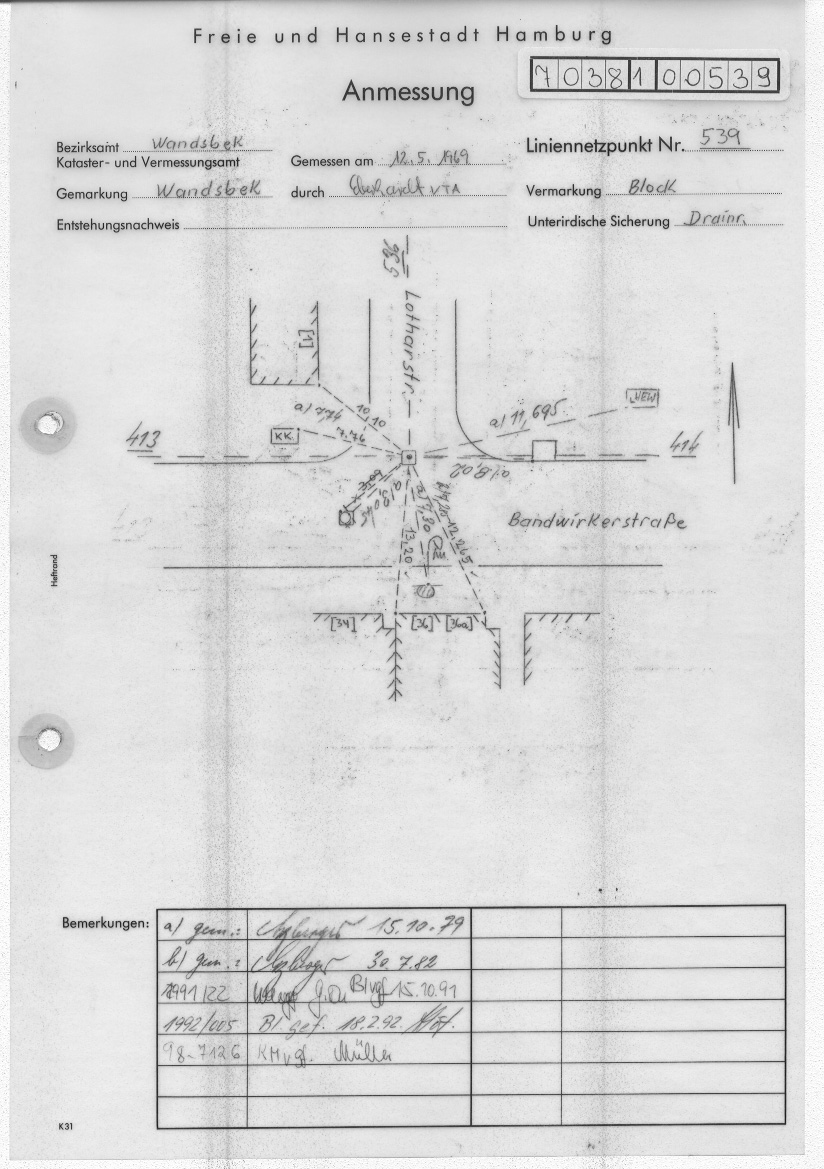 Freie und Hansestadt Hamburg
7038100539
Anmessung
Bezirksamt Wandsbek
Kataster- und Vermessungsamt
Gemessen am 12.5.1969
Liniennetzpunkt Nr. 539
Gemarkung Wandsbek
durch Eberhardt VTA
Vermarkung Block
Entstehungsnachweis
Unterirdische Sicherung Drainr.
536
Lotharstr.
[1]
NEW
a) 7,74
10,10
a) 11,695
KK.
7,76
413
414
Bandwirkerstraße
a) 9,80
12,265
13,20
[34]
[36]
[36a]
Heftrand
Bemerkungen:
a) gem.: 15.10.79
b) gem.: 30.7.82
1991/22 Blvgl 15.10.91
1992/005 Bl. gef. 18.2.92.
98-7126 KMvgl. Müller
K31